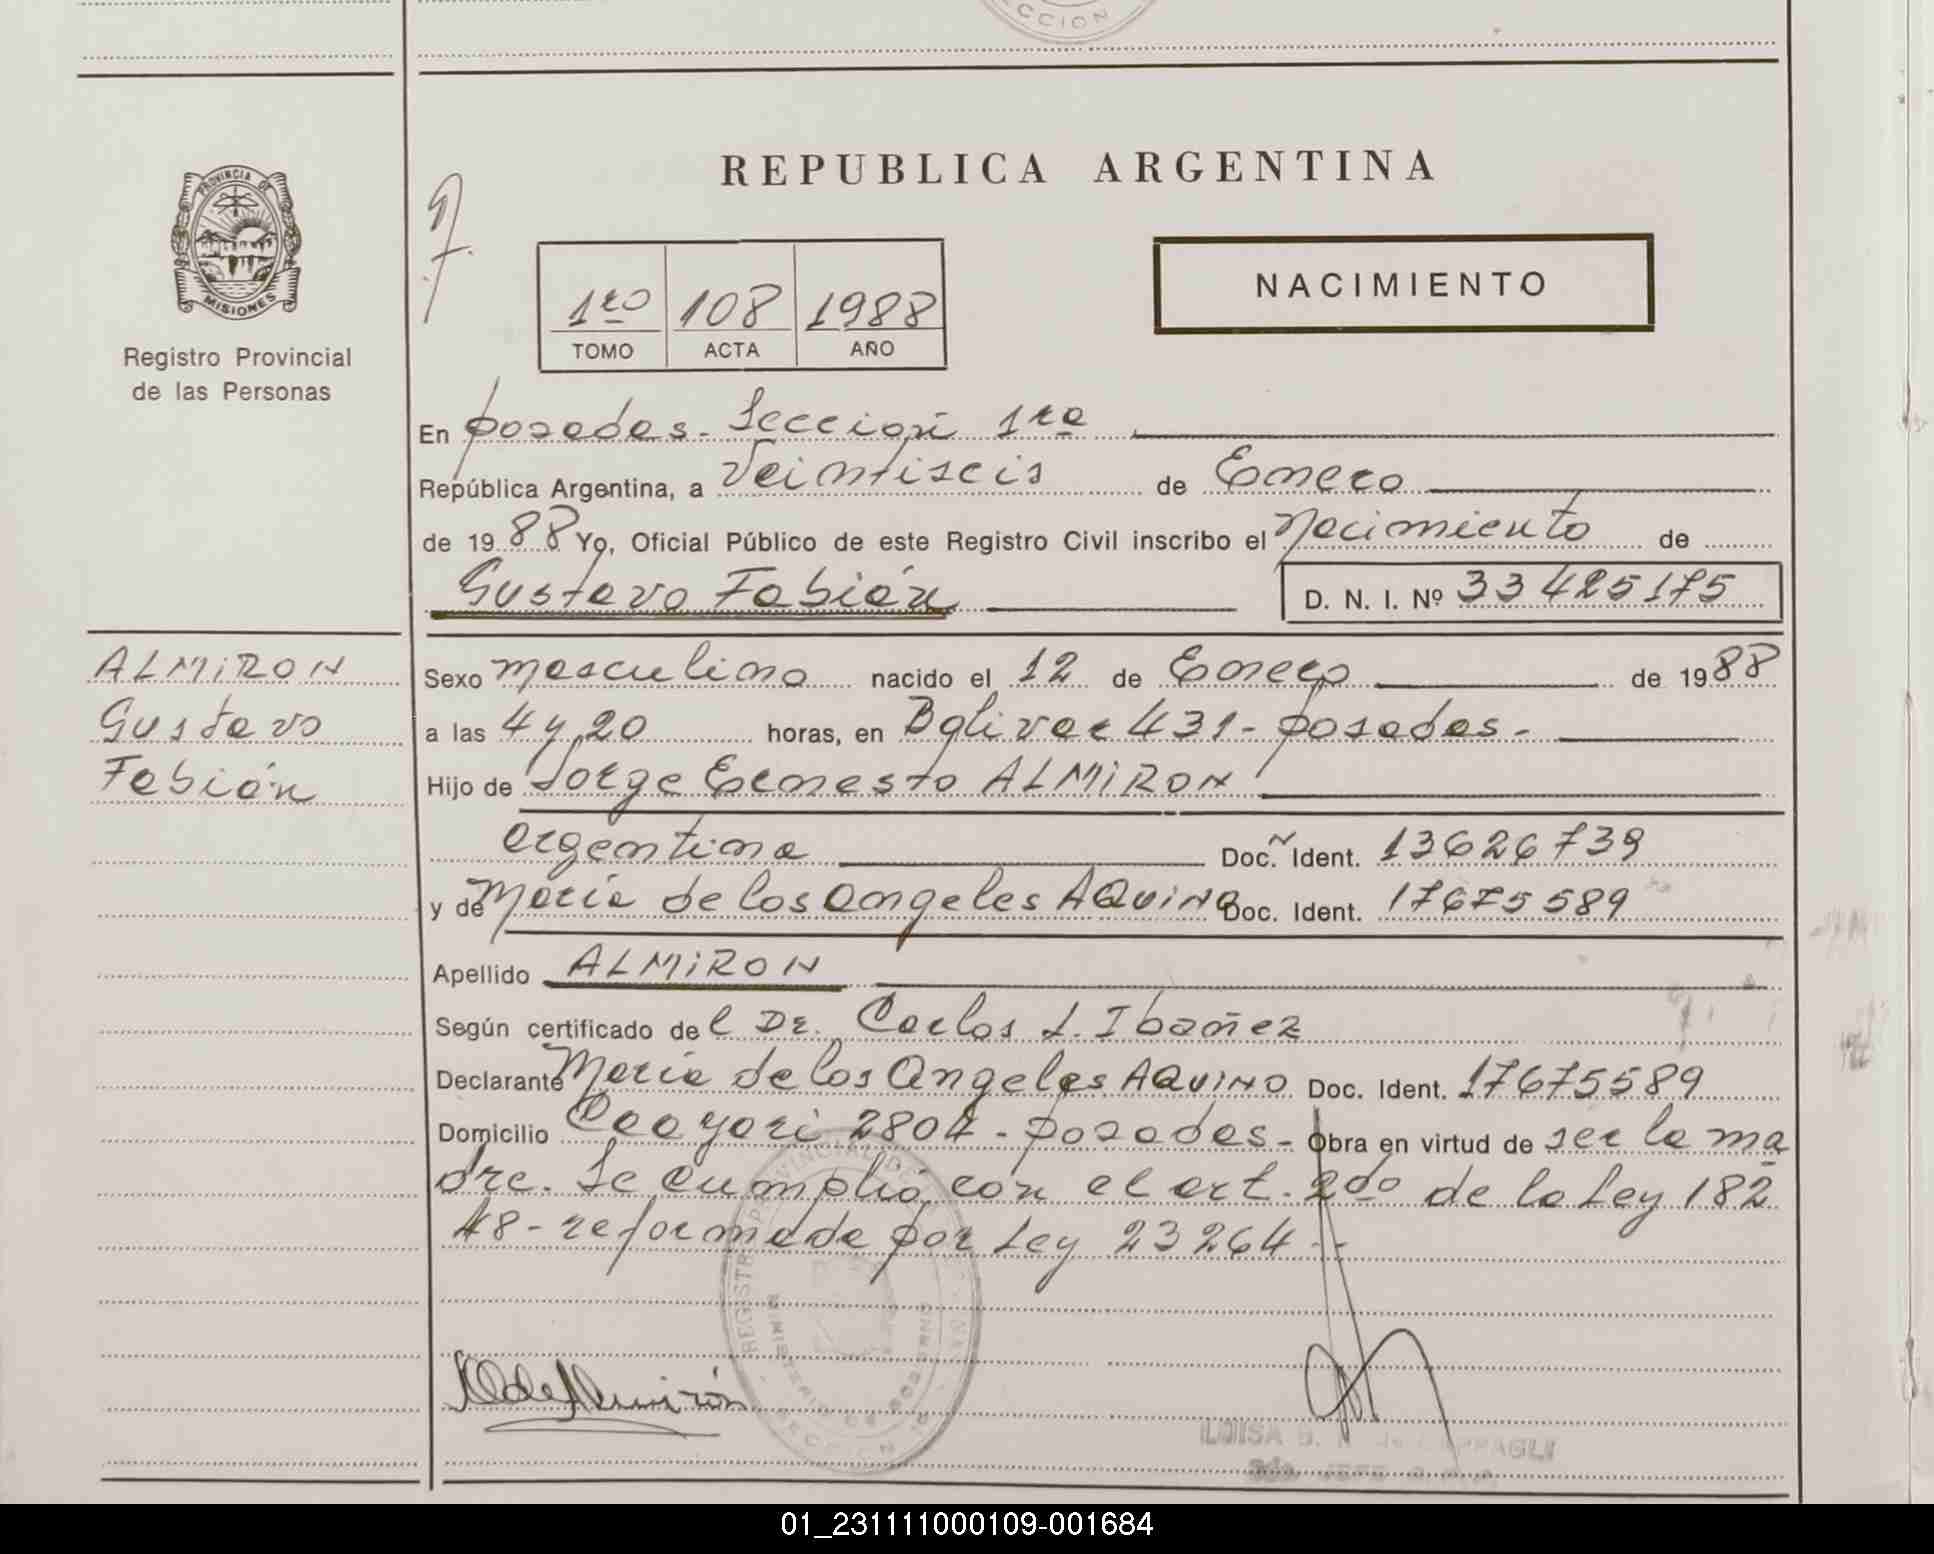 CCION
REPUBLICA ARGENTINA
PROVINCIA DE
MISIONES
Registro Provincial
de las Personas
1ro 108 1988
TOMO ACTA AÑO
NACIMIENTO
En posadas - Sección 1ra
República Argentina, a Veintiseis de Enero
de 1988 Yo, Oficial Público de este Registro Civil inscribo el Nacimiento de
Gustavo Fabián D. N. I. Nº 33425175
ALMiRON
Gustavo
Fabián
Sexo masculino nacido el 12 de Enero de 1988
a las 4 y 20 horas, en Bolivar 431 - posadas -
Hijo de Jorge Ernesto ALMiRON
argentina Doc. Ident. 13626739
y de María de los Angeles AQuiNO Doc. Ident. 17675589
Apellido ALMiRON
Según certificado del Dr. Carlos L. Ibañez
Declarante María de los Angeles AQuiNO Doc. Ident. 17675589
Domicilio Caayari 2804 - posadas - Obra en virtud de ser la ma
dre. Se cumplió con el art. 2do de la Ley 182
48 - reformada por Ley 23264 - -
REGISTRO PROVINCIAL DE
MINISTERIO DE GOBIERNO
SECCION
LUISA B.
01_231111000109-001684